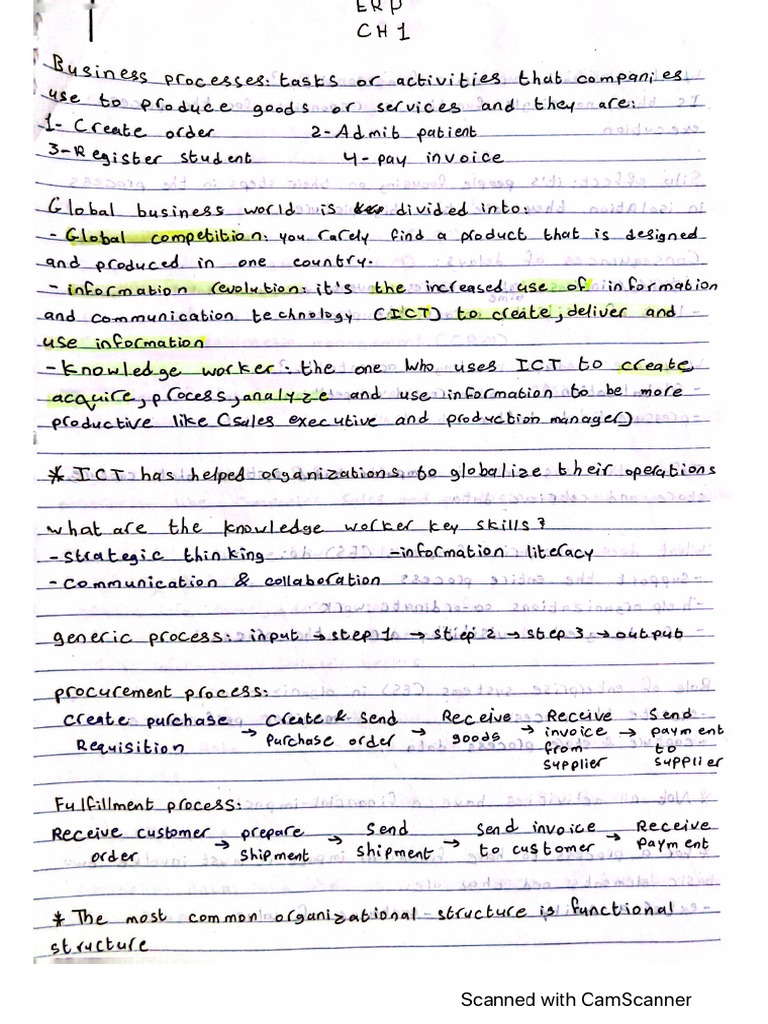 ERP
CH1
Business processes: tasks or activities that companies
use to produce goods or services and they are:
1- Create order 2-Admit patient
3-Register student 4-pay invoice
Global business world is divided into:
- Global competition: you rarely find a product that is designed
and produced in one country.
- information revolution: it's the increased use of information
and communication technology (ICT) to create, deliver and
use information
-knowledge worker: the one who uses ICT to create,
acquire, process, analyze and use information to be more
productive like (sales executive and production manager)
* ICT has helped organizations to globalize their operations
what are the knowledge worker key skills?
-strategic thinking -information literacy
- communication & collaboration
generic process: input → step 1 → step 2 → step 3 → output
procurement process:
Create purchase Requisition → Create & Send purchase order → Receive goods → Receive invoice from supplier → Send payment to supplier
Fulfillment process:
Receive customer order → prepare shipment → Send shipment → Send invoice to customer → Receive payment
* The most common organizational structure is functional
structure
Scanned with CamScanner